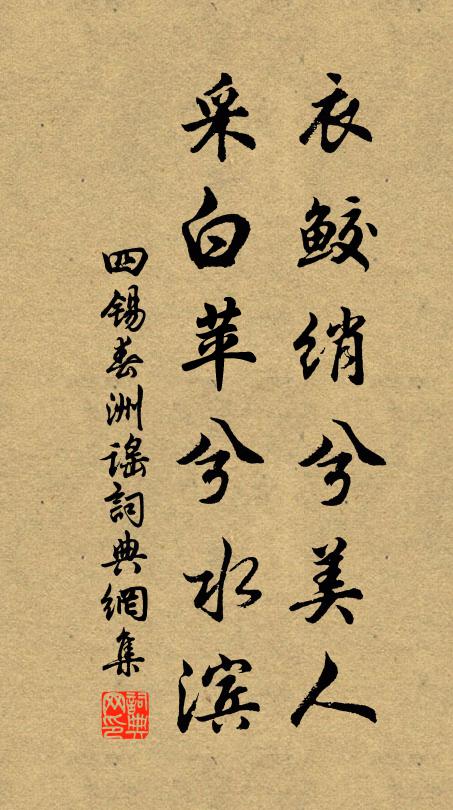 衣鲛绡兮美人
采白苹兮水滨
四锡春洲谣詞典網集
詞典网印